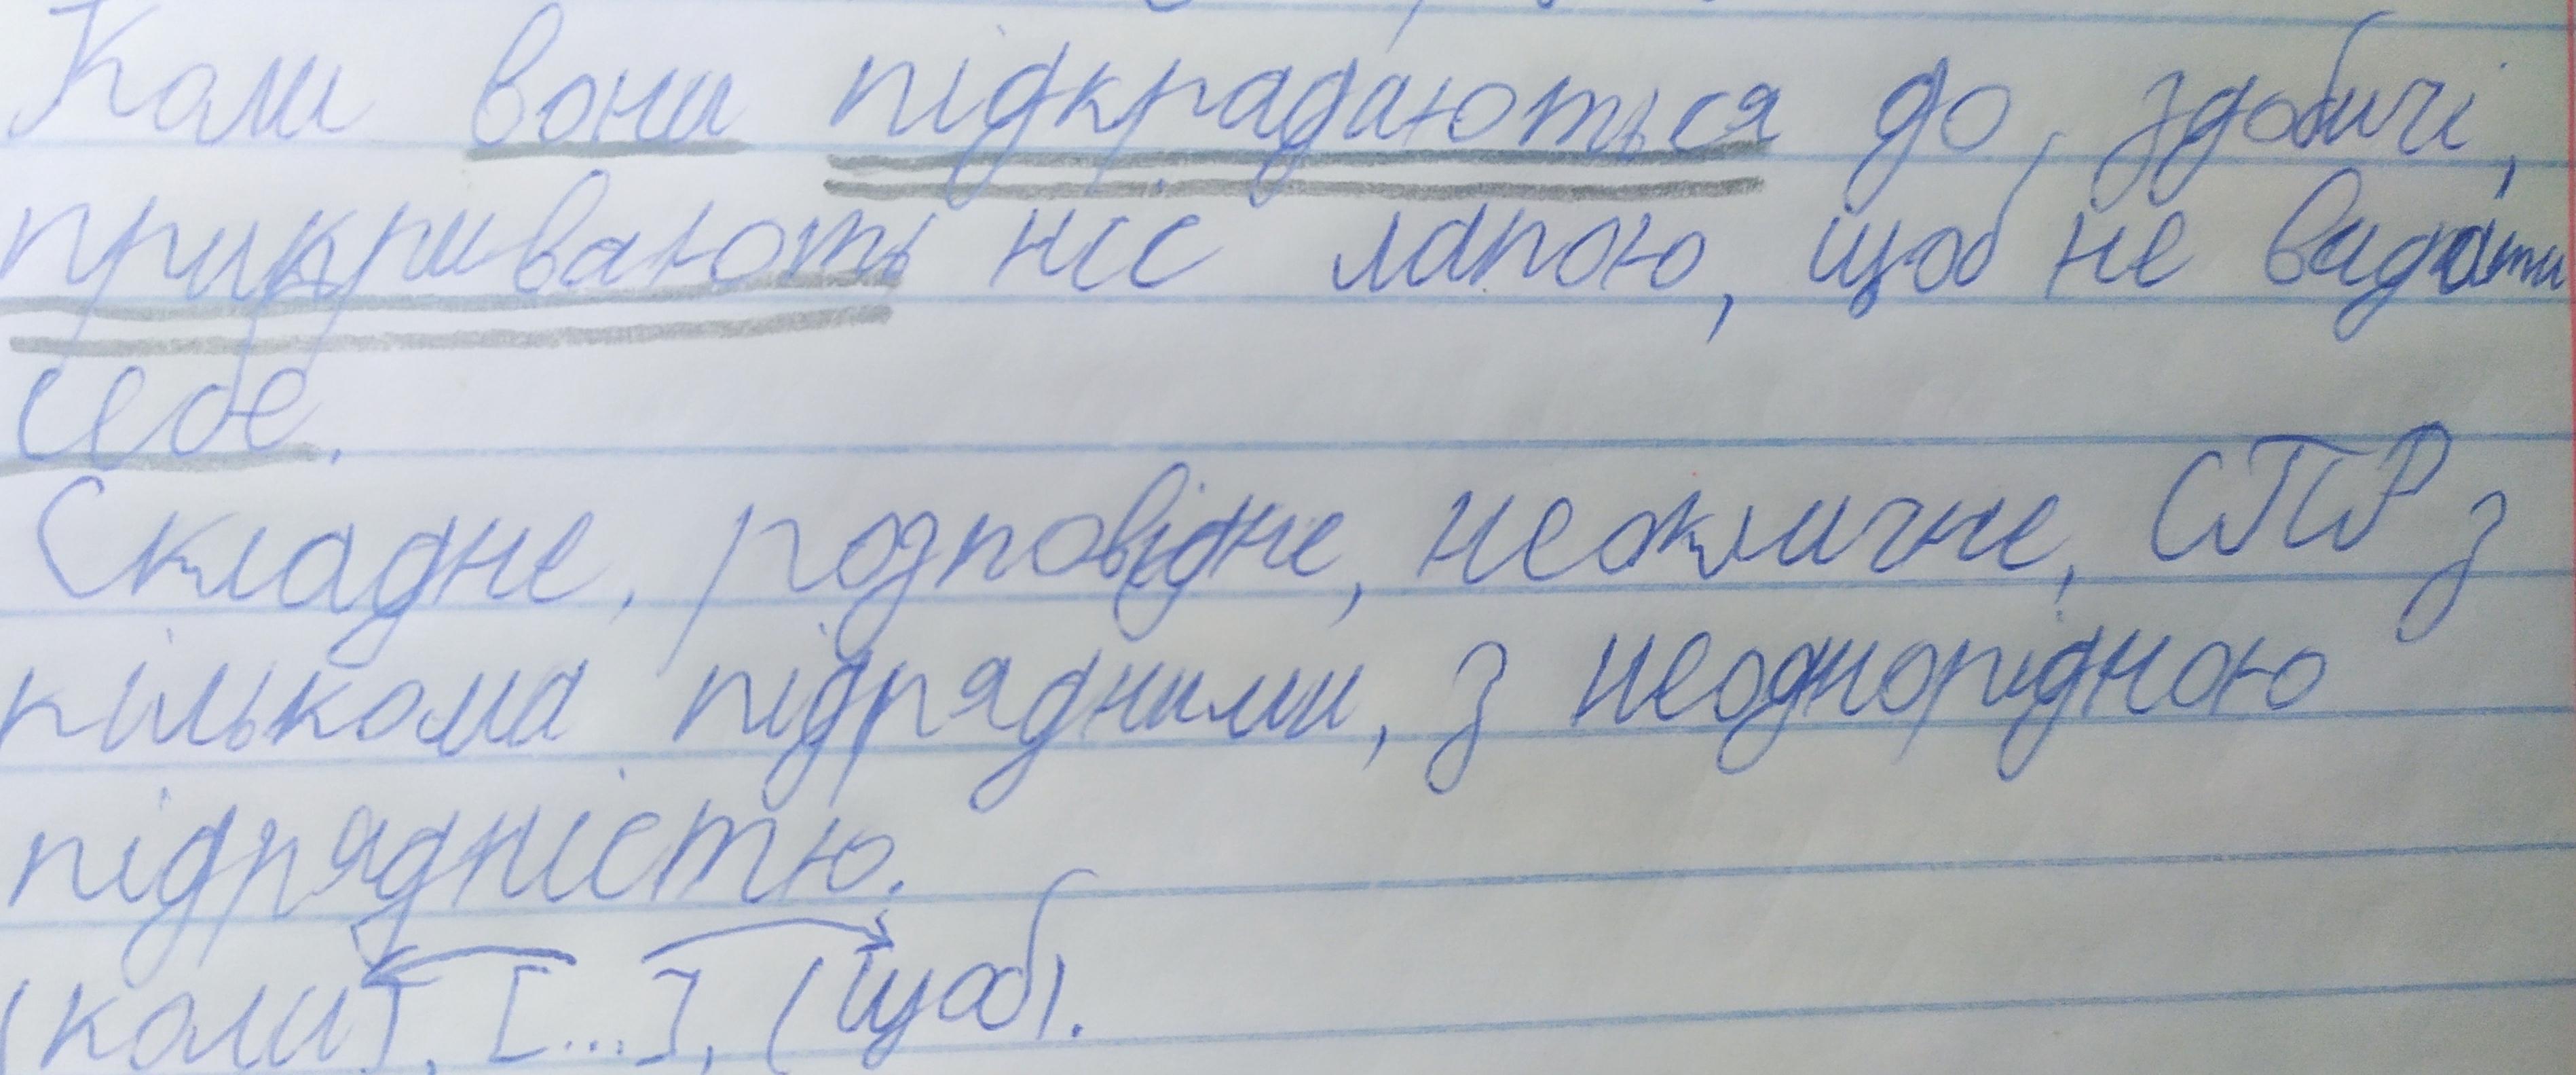 Коли вони підкрадаються до здобичі,
прикривають ніс лапою, щоб не видати
себе.
Складне, розповідне, неокличне, СПР з
кількома підрядними, з неоднорідною
підрядністю.
(коли), [...], (щоб).